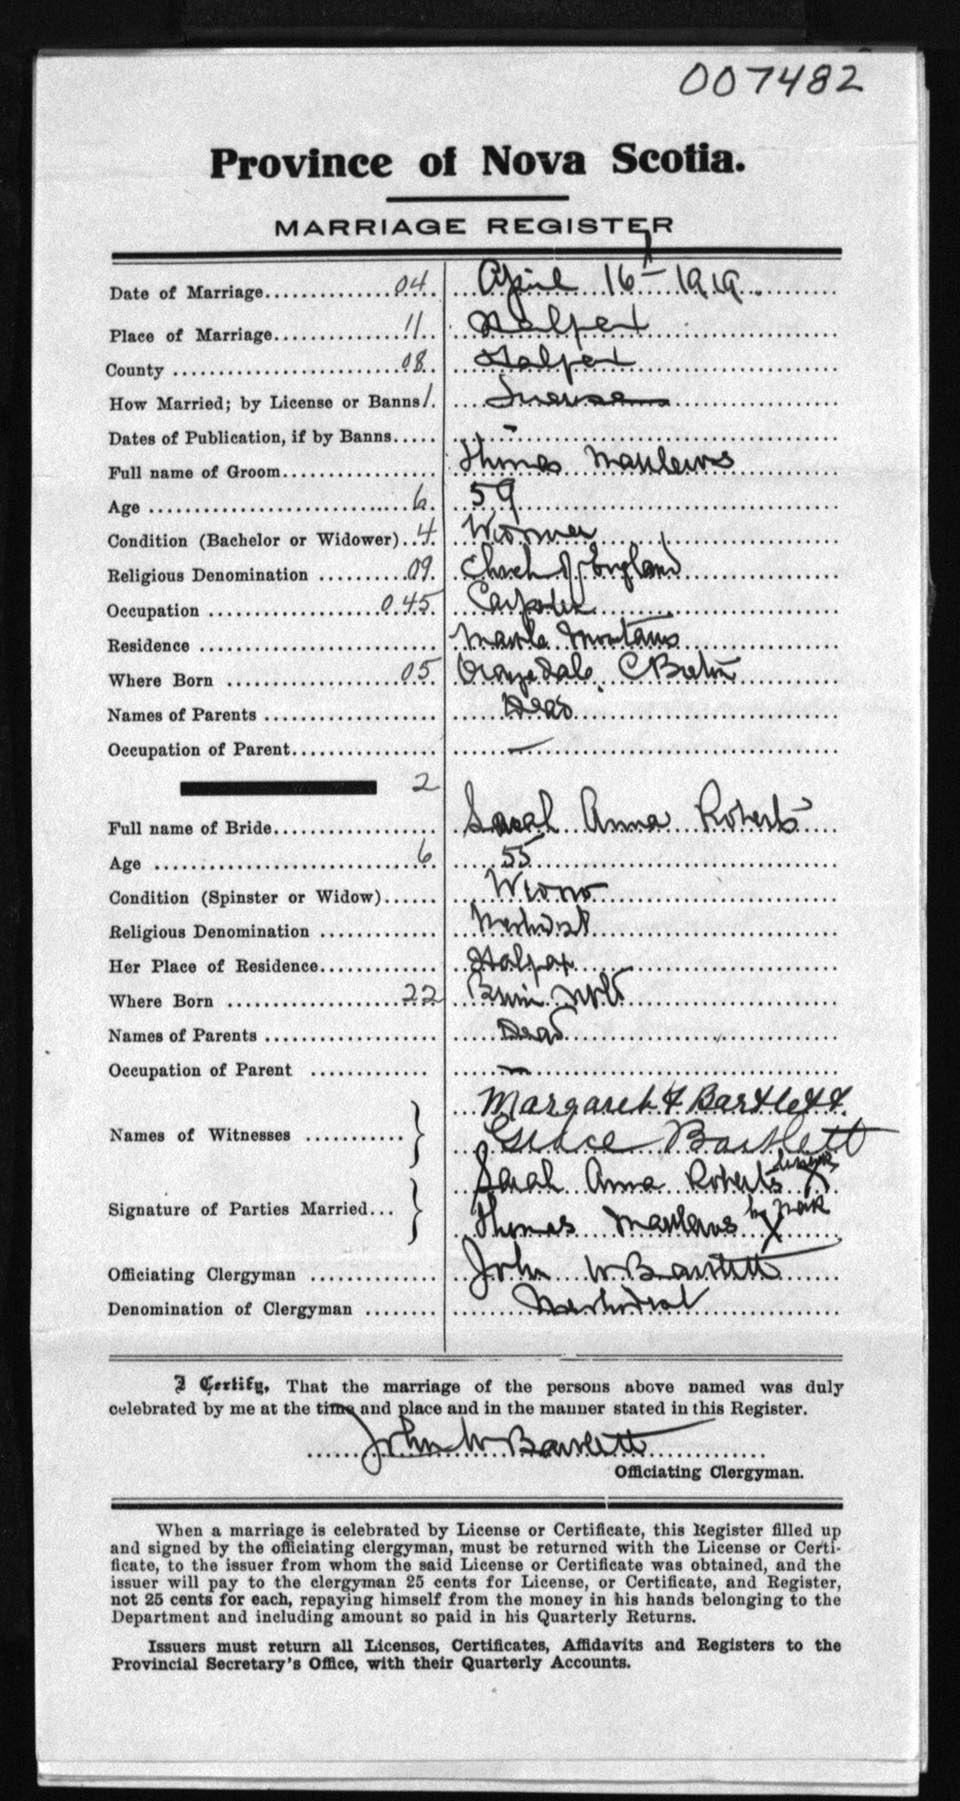 007482
Province of Nova Scotia.
MARRIAGE REGISTER
Date of Marriage 04 April 16th 1919
Place of Marriage 11 Halifax
County 08 Halifax
How Married; by License or Banns 1 License
Dates of Publication, if by Banns -
Full name of Groom Thomas Matthews
Age 6 59
Condition (Bachelor or Widower) 4 Widower
Religious Denomination 09 Church of England
Occupation 045 Carpenter
Residence Marble Mountain
Where Born 05 Orangedale C Breton
Names of Parents Dead
Occupation of Parent —
2
Full name of Bride Sarah Anna Roberts
Age 6 55
Condition (Spinster or Widow) Widow
Religious Denomination Methodist
Her Place of Residence Halifax
Where Born 22 Burin Nfld
Names of Parents Dead
Occupation of Parent —
Margaret F Bartlett.
Names of Witnesses Grace Bartlett
Sarah Anna Roberts X
Signature of Parties Married... Thomas Matthews his X mark
Officiating Clergyman John W Bartlett
Denomination of Clergyman Methodist
I Certify, That the marriage of the persons above named was duly
celebrated by me at the time and place and in the manner stated in this Register.
John W Bartlett
Officiating Clergyman.
When a marriage is celebrated by License or Certificate, this Register filled up
and signed by the officiating clergyman, must be returned with the License or Certi-
ficate, to the issuer from whom the said License or Certificate was obtained, and the
issuer will pay to the clergyman 25 cents for License, or Certificate, and Register,
not 25 cents for each, repaying himself from the money in his hands belonging to the
Department and including amount so paid in his Quarterly Returns.
Issuers must return all Licenses, Certificates, Affidavits and Registers to the
Provincial Secretary's Office, with their Quarterly Accounts.